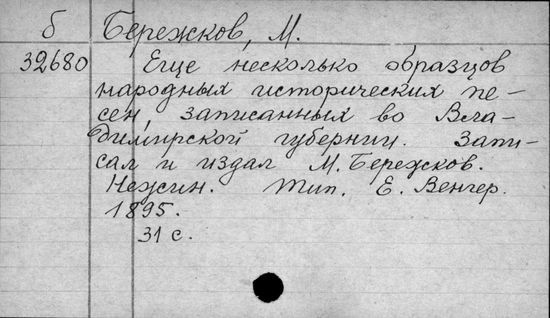 б Бережков, М.
39680 Еще несколько образцов
народных исторических пе-
сен, записанных во Вла-
димирской губернии. Запи-
сал и издал М. Бережков.
Нежин. Тип. Е. Венгер.
1895.
31 с.